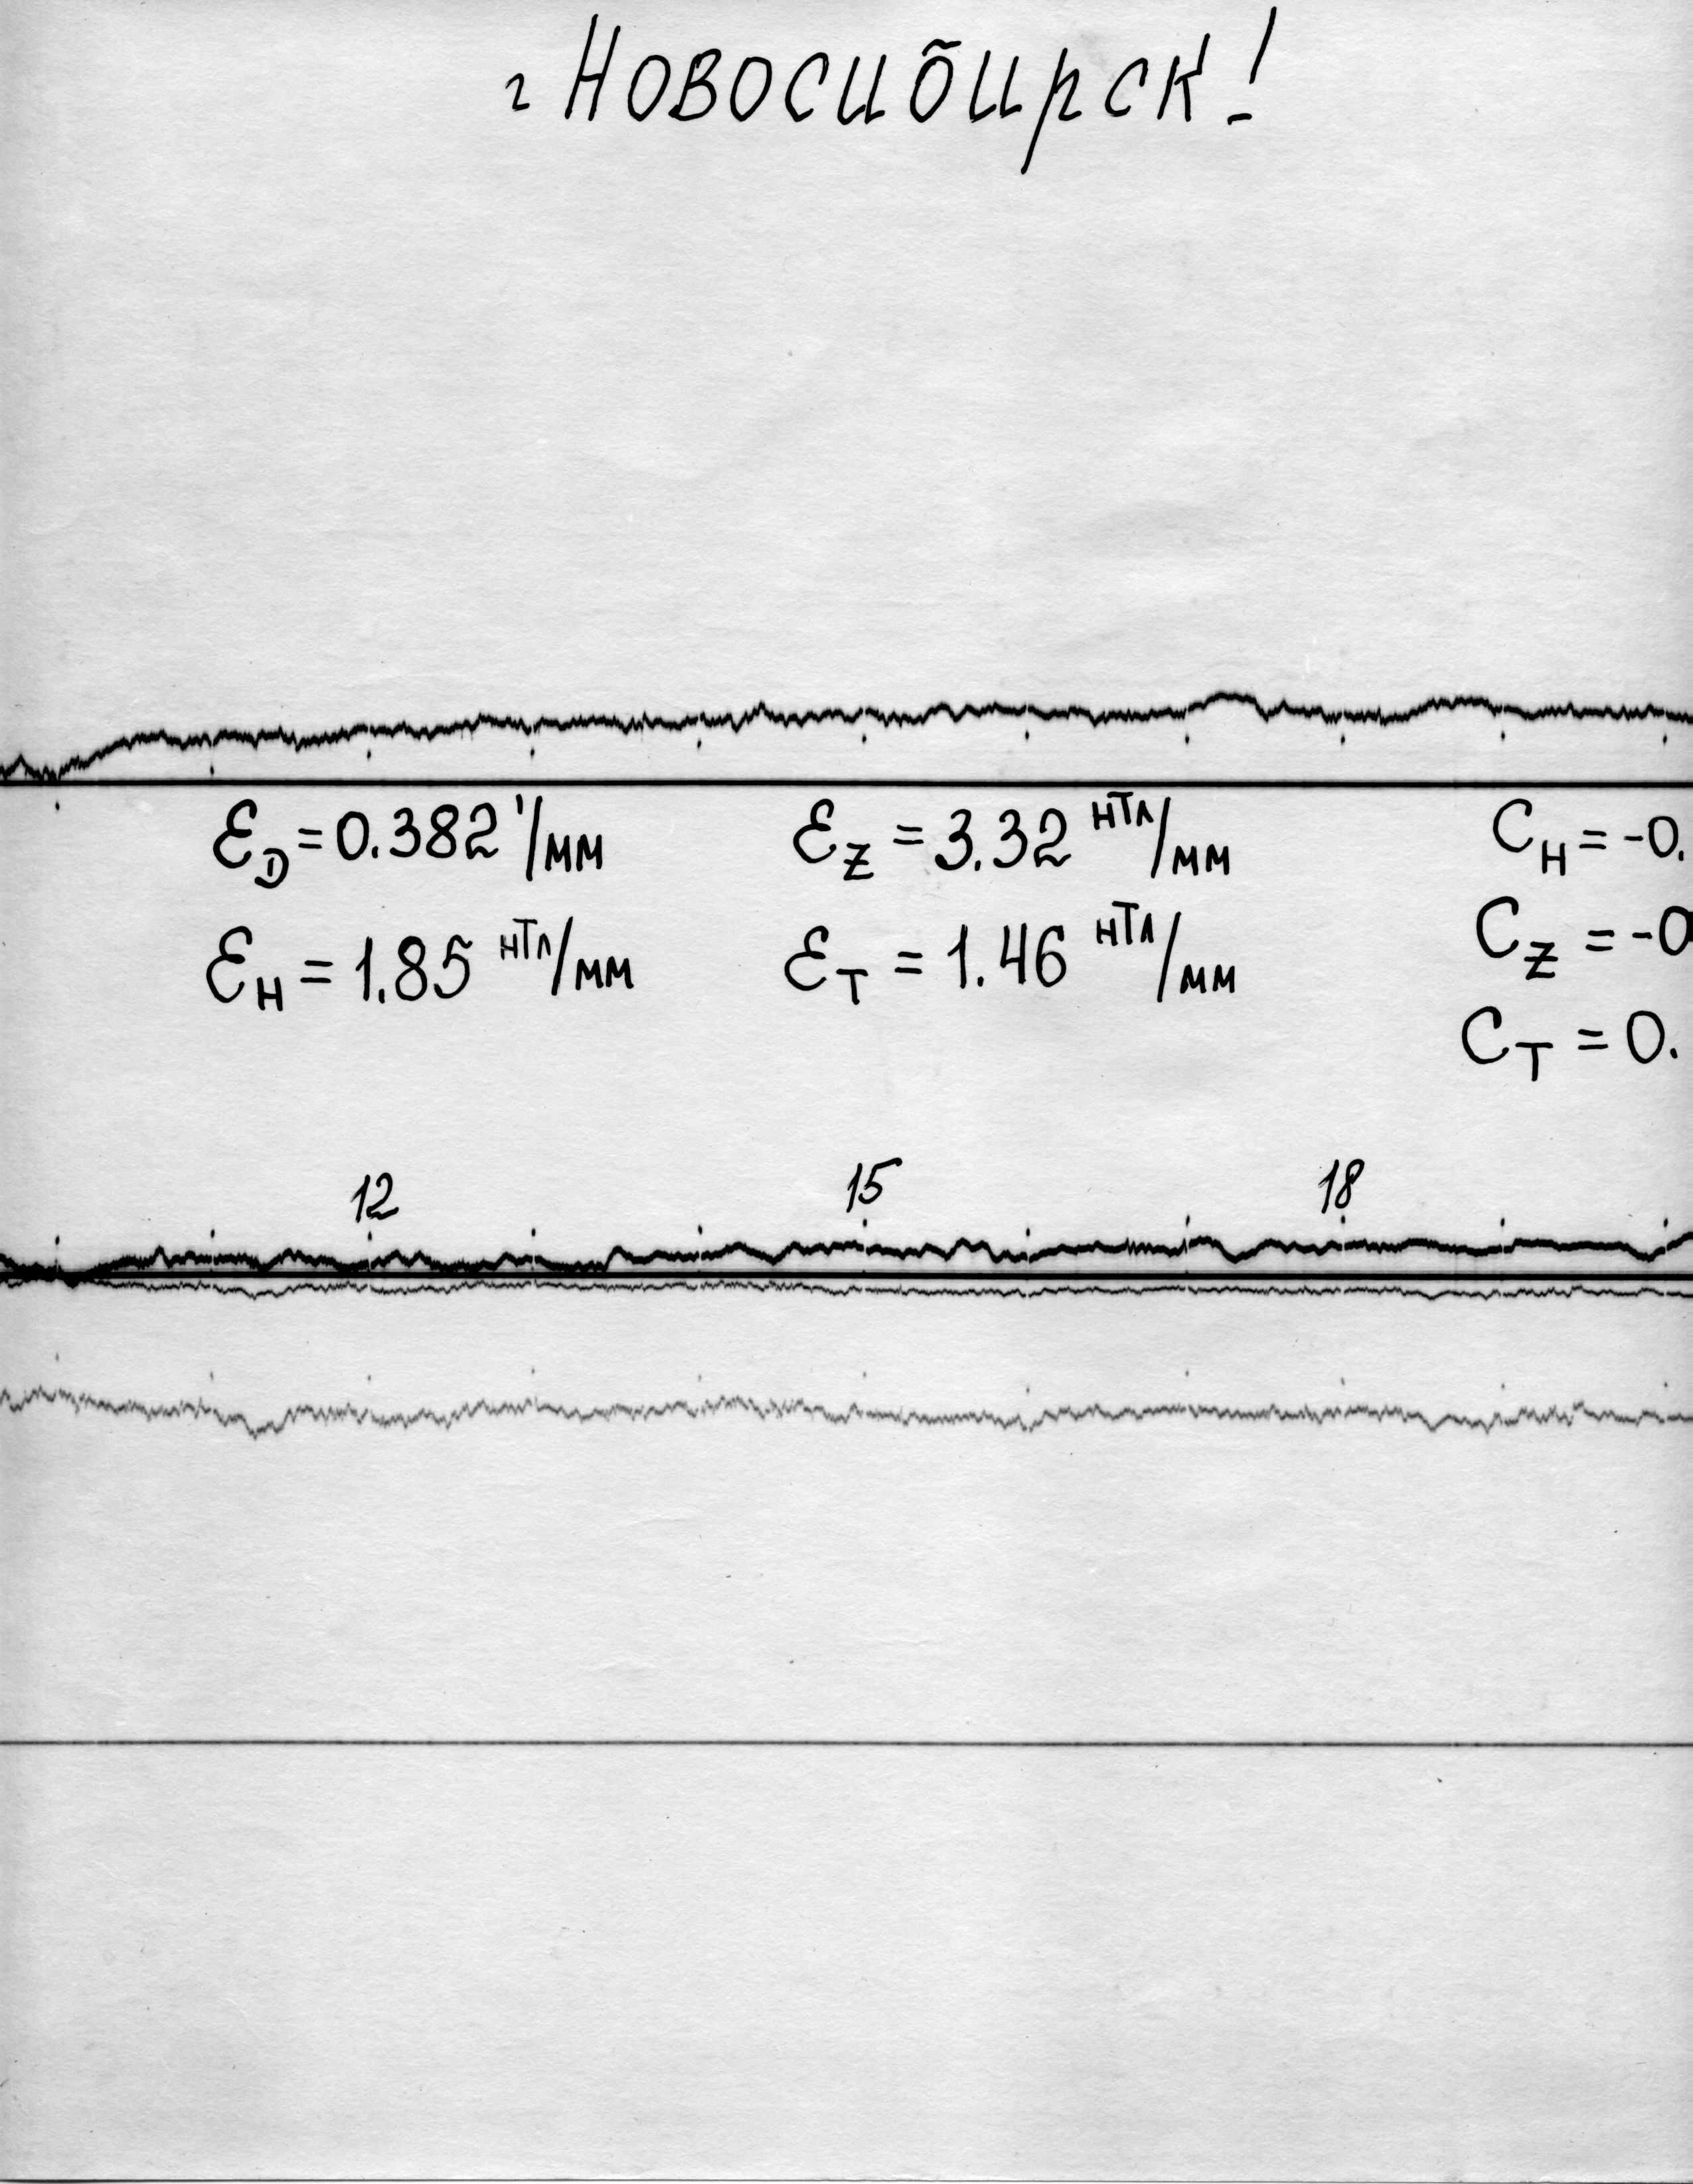 г Новосибирск!
Ɛ_D = 0.382 '/мм Ɛ_Z = 3.32 нТл/мм C_H = -0.
Ɛ_H = 1.85 нТл/мм Ɛ_T = 1.46 нТл/мм C_Z = -0
C_T = 0.
12 15 18